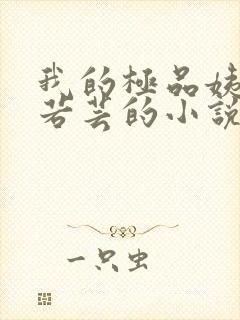 我的極品姨
若芸的小說
一只虫